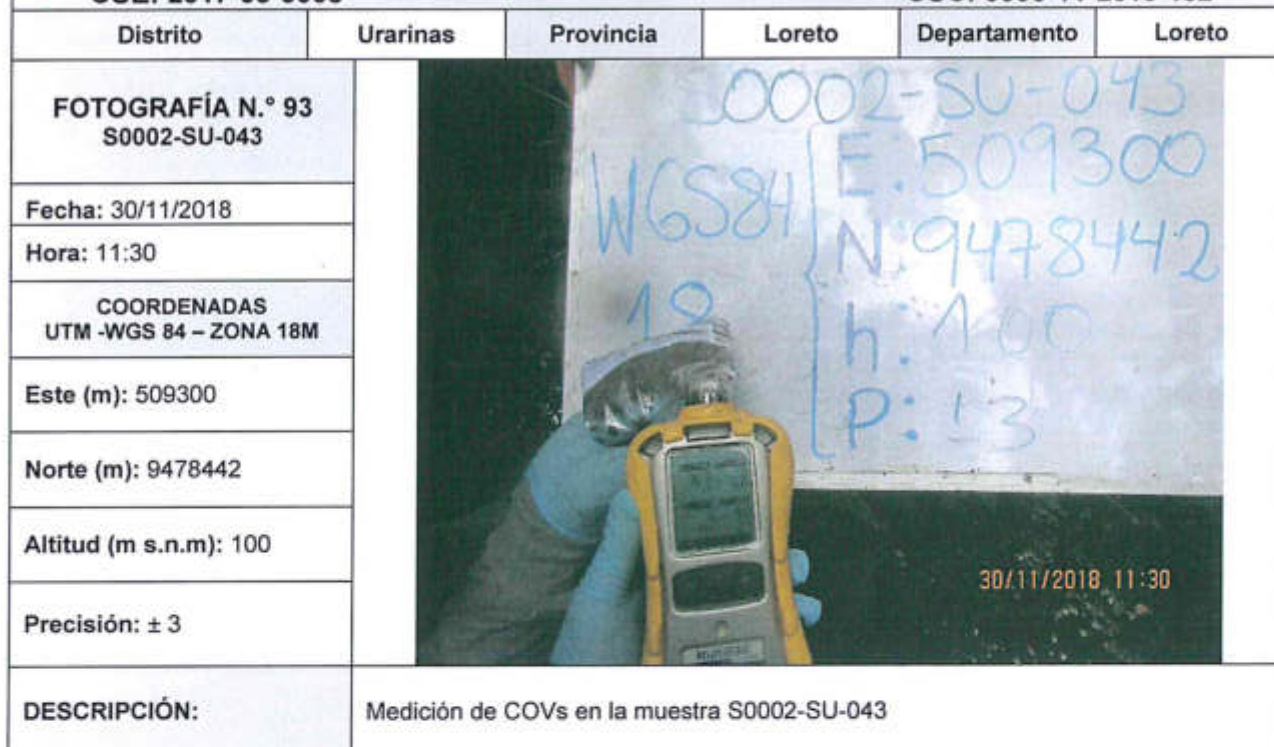 Distrito Urarinas Provincia Loreto Departamento Loreto
FOTOGRAFÍA N.° 93
S0002-SU-043
Fecha: 30/11/2018
Hora: 11:30
COORDENADAS
UTM -WGS 84 – ZONA 18M
Este (m): 509300
Norte (m): 9478442
Altitud (m s.n.m): 100
Precisión: ± 3
S0002-SU-043
WGS84
18
E: 509300
N: 9478442
h: 100
P: ±3
30/11/2018 11:30
DESCRIPCIÓN: Medición de COVs en la muestra S0002-SU-043